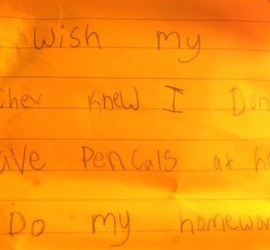 wish my
cher knew I Don
ave Pencals at h
Do my homewor